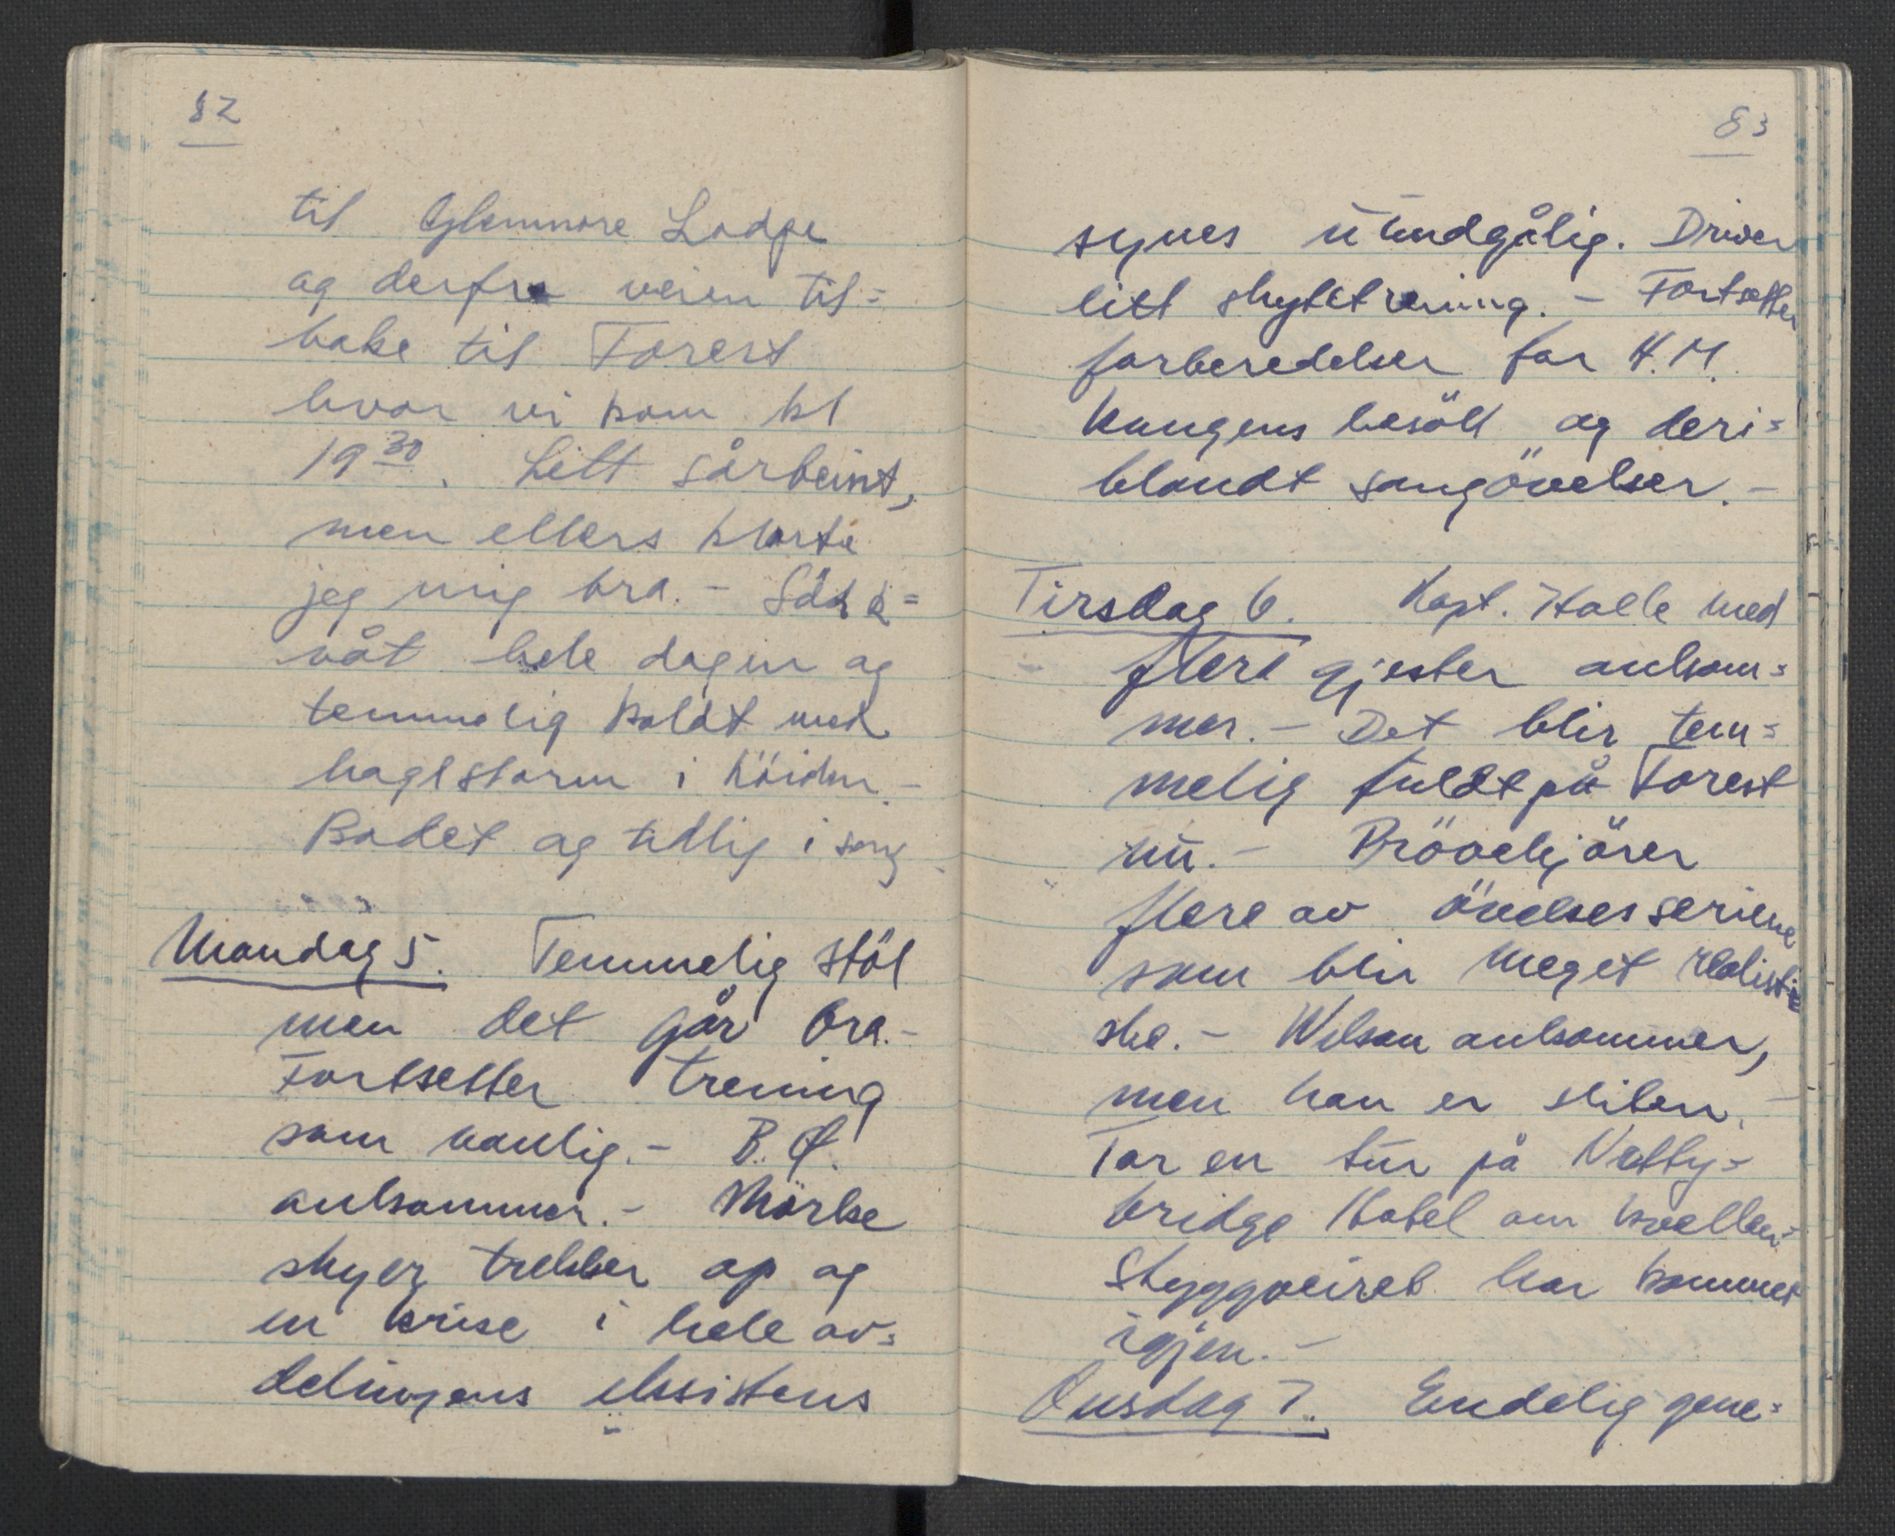 82
til Glenmore Lodge
og derfra veien til=
bake til Forest
hvor vi kom kl
19 30. Litt sårbeint,
men ellers klarte
jeg mig bra. -
våt hele dagen og
temmelig koldt med
haglstorm i höiden. -
Badet og tidlig i seng.
Mandag 5. Temmelig stöl
men det går bra. -
Fortsetter trening
som vanlig. - B.Ø.
ankommer. - Mörke
skyer trekker op og
en krise i hele av=
delingens eksistens
83
synes uundgålig. Driver
litt skytetrening. - Fortsetter
forberedelser for H.M.
Kongens besök og deri=
blandt sangövelser. -
Tirsdag 6. Kapt. Halle med
flere gjester ankom=
mer. - Det blir tem=
melig fuldt på Forest
nu. - Prövekjörer
flere av övelsesseriene
som blir meget realisti=
ske. - Wilson ankommer,
men han er sliten. -
Tar en tur på Nethy=
bridge Hotel om kvellen. -
Styggveiret har kommet
igjen. -
Onsdag 7. Endelig gene=